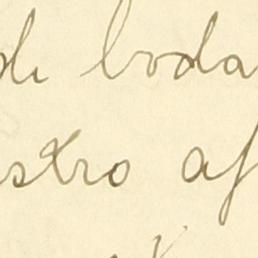 di boda
stro af